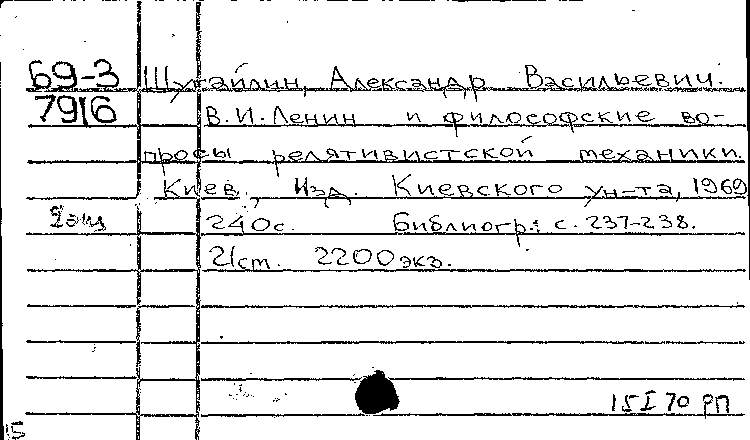 69-3 Шугайлин, Александр Васильевич.
7916 В.И.Ленин и философские во-
просы релятивистской механики.
Киев, Изд. Киевского ун-та, 1969
2экз 240с. Библиогр.: с. 237-238.
21см. 2200экз.
15 I 70 РП
15